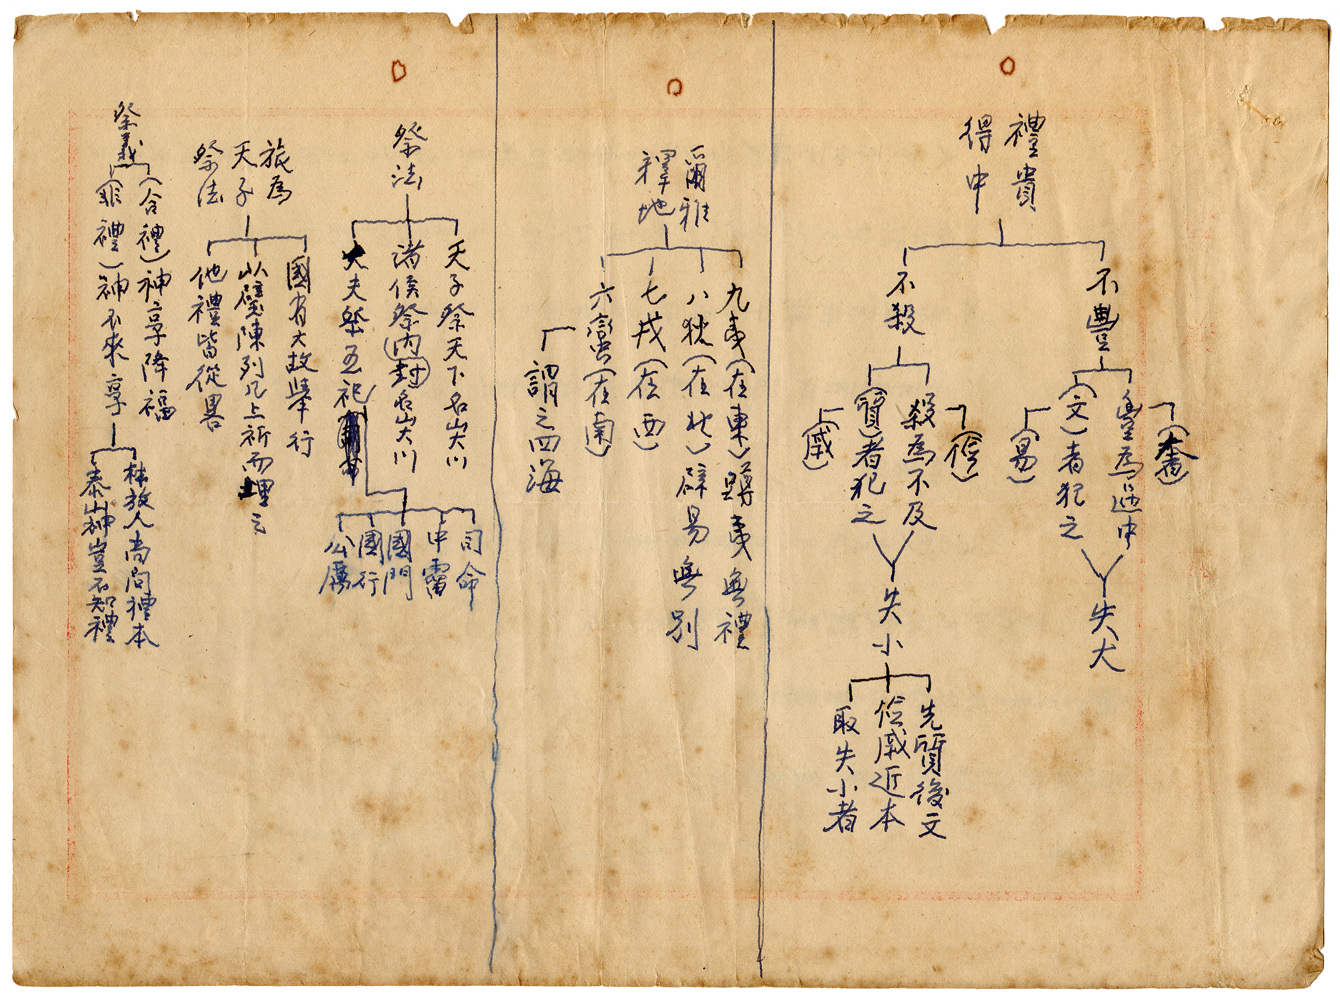 禮貴
得中
不豐
豐為過中
(奢)
(文)者犯之
(易)
失大
不殺
殺為不及
(儉)
(質)者犯之
(戚)
失小
先質後文
儉戚近本
取失小者
爾雅
釋地
九夷(在東)蹲夷無禮
八狄(在北)辟易無別
七戎(在西)
六蠻(在南)
謂之四海
祭法
天子祭天下名山大川
諸侯祭內封名山大川
大夫祭五祀
司命
中霤
國門
國行
公厲
旅為
天子
祭法
國有大故舉行
以璧陳列几上祈而埋之
他禮皆從畧
祭義
(合禮)神享降福
(非禮)神不來享
林放人尚問禮本
泰山神豈不知禮